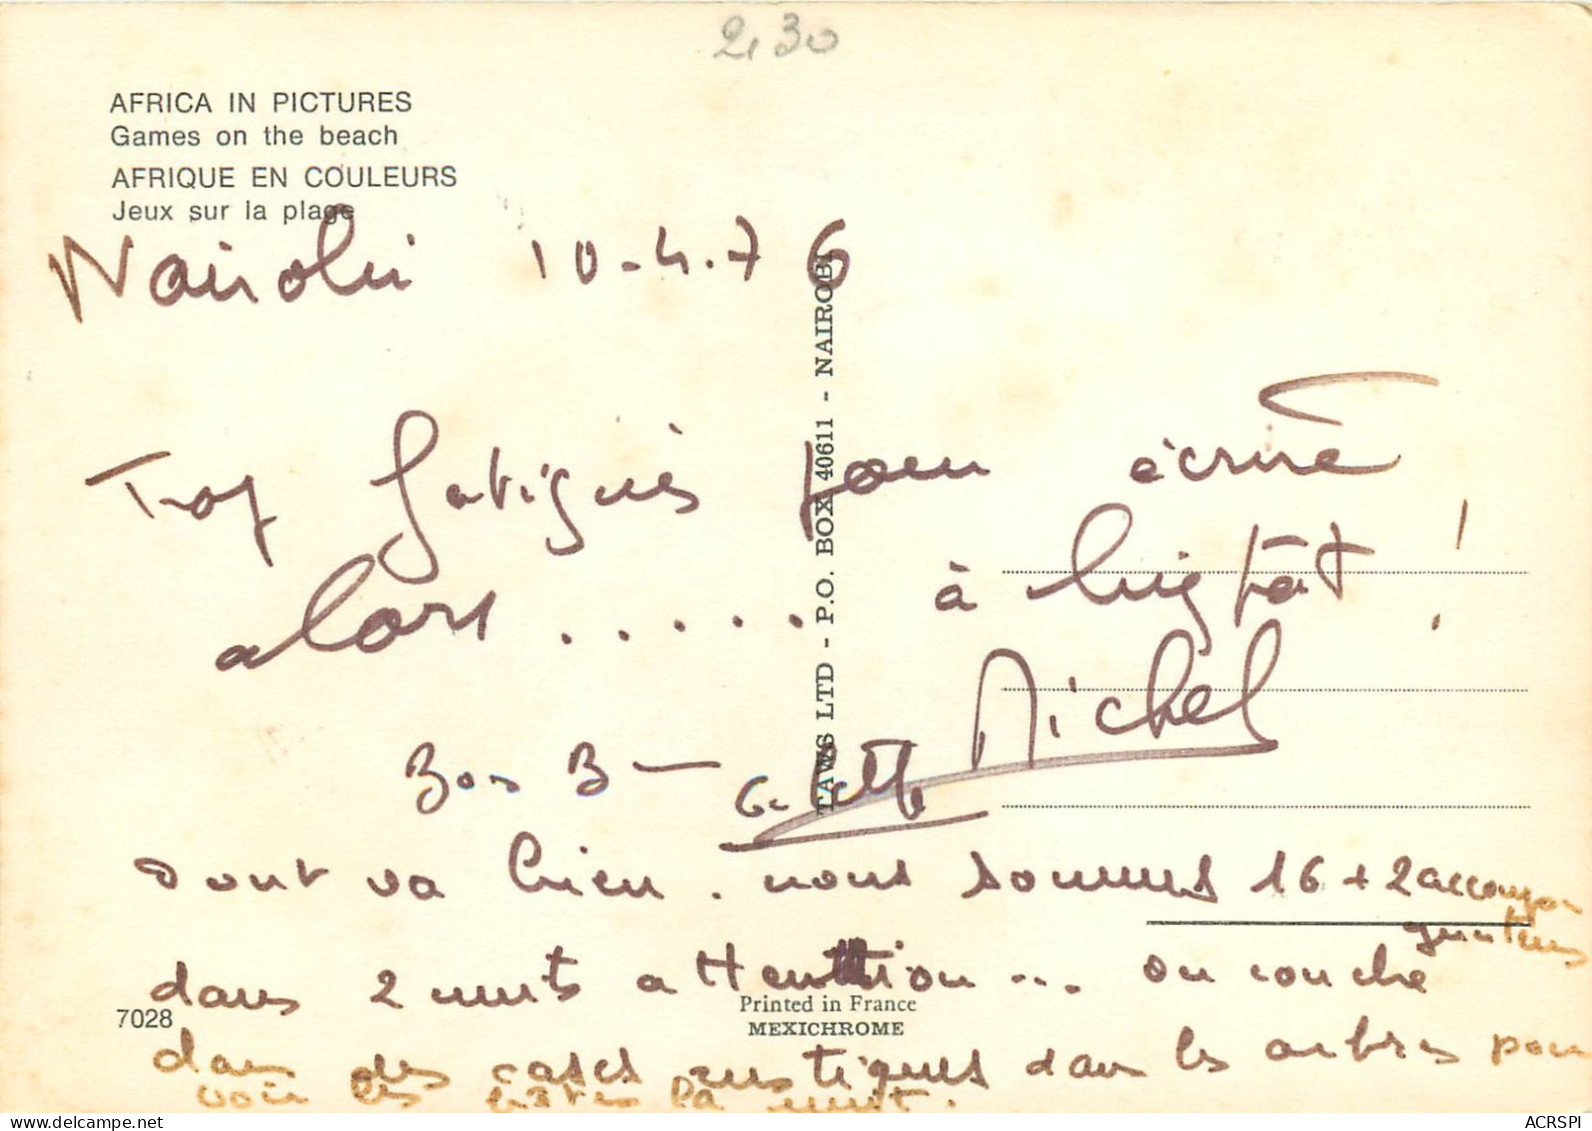 2,30
AFRICA IN PICTURES
Games on the beach
AFRIQUE EN COULEURS
Jeux sur la plage
Nairobi 10-4.76
Trop fatigués pour écrire
alors ..... à bientôt !
Michel
Bons B —
Tout va bien. nous sommes 16 + 2 accompa
gnateurs
dans 2 nuits attention ... on couche
dans des cases rustiques dans les arbres pour
voir les bêtes la nuit.
TAWS LTD - P.O. BOX 40611 - NAIROBI
7028
Printed in France
MEXICHROME
ACRSPI